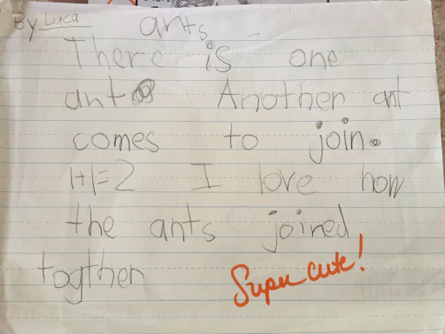 By Luca
ants
There is one
ant. Another ant
comes to join.
1+1=2 I love how
the ants joined
togther
Super cute!